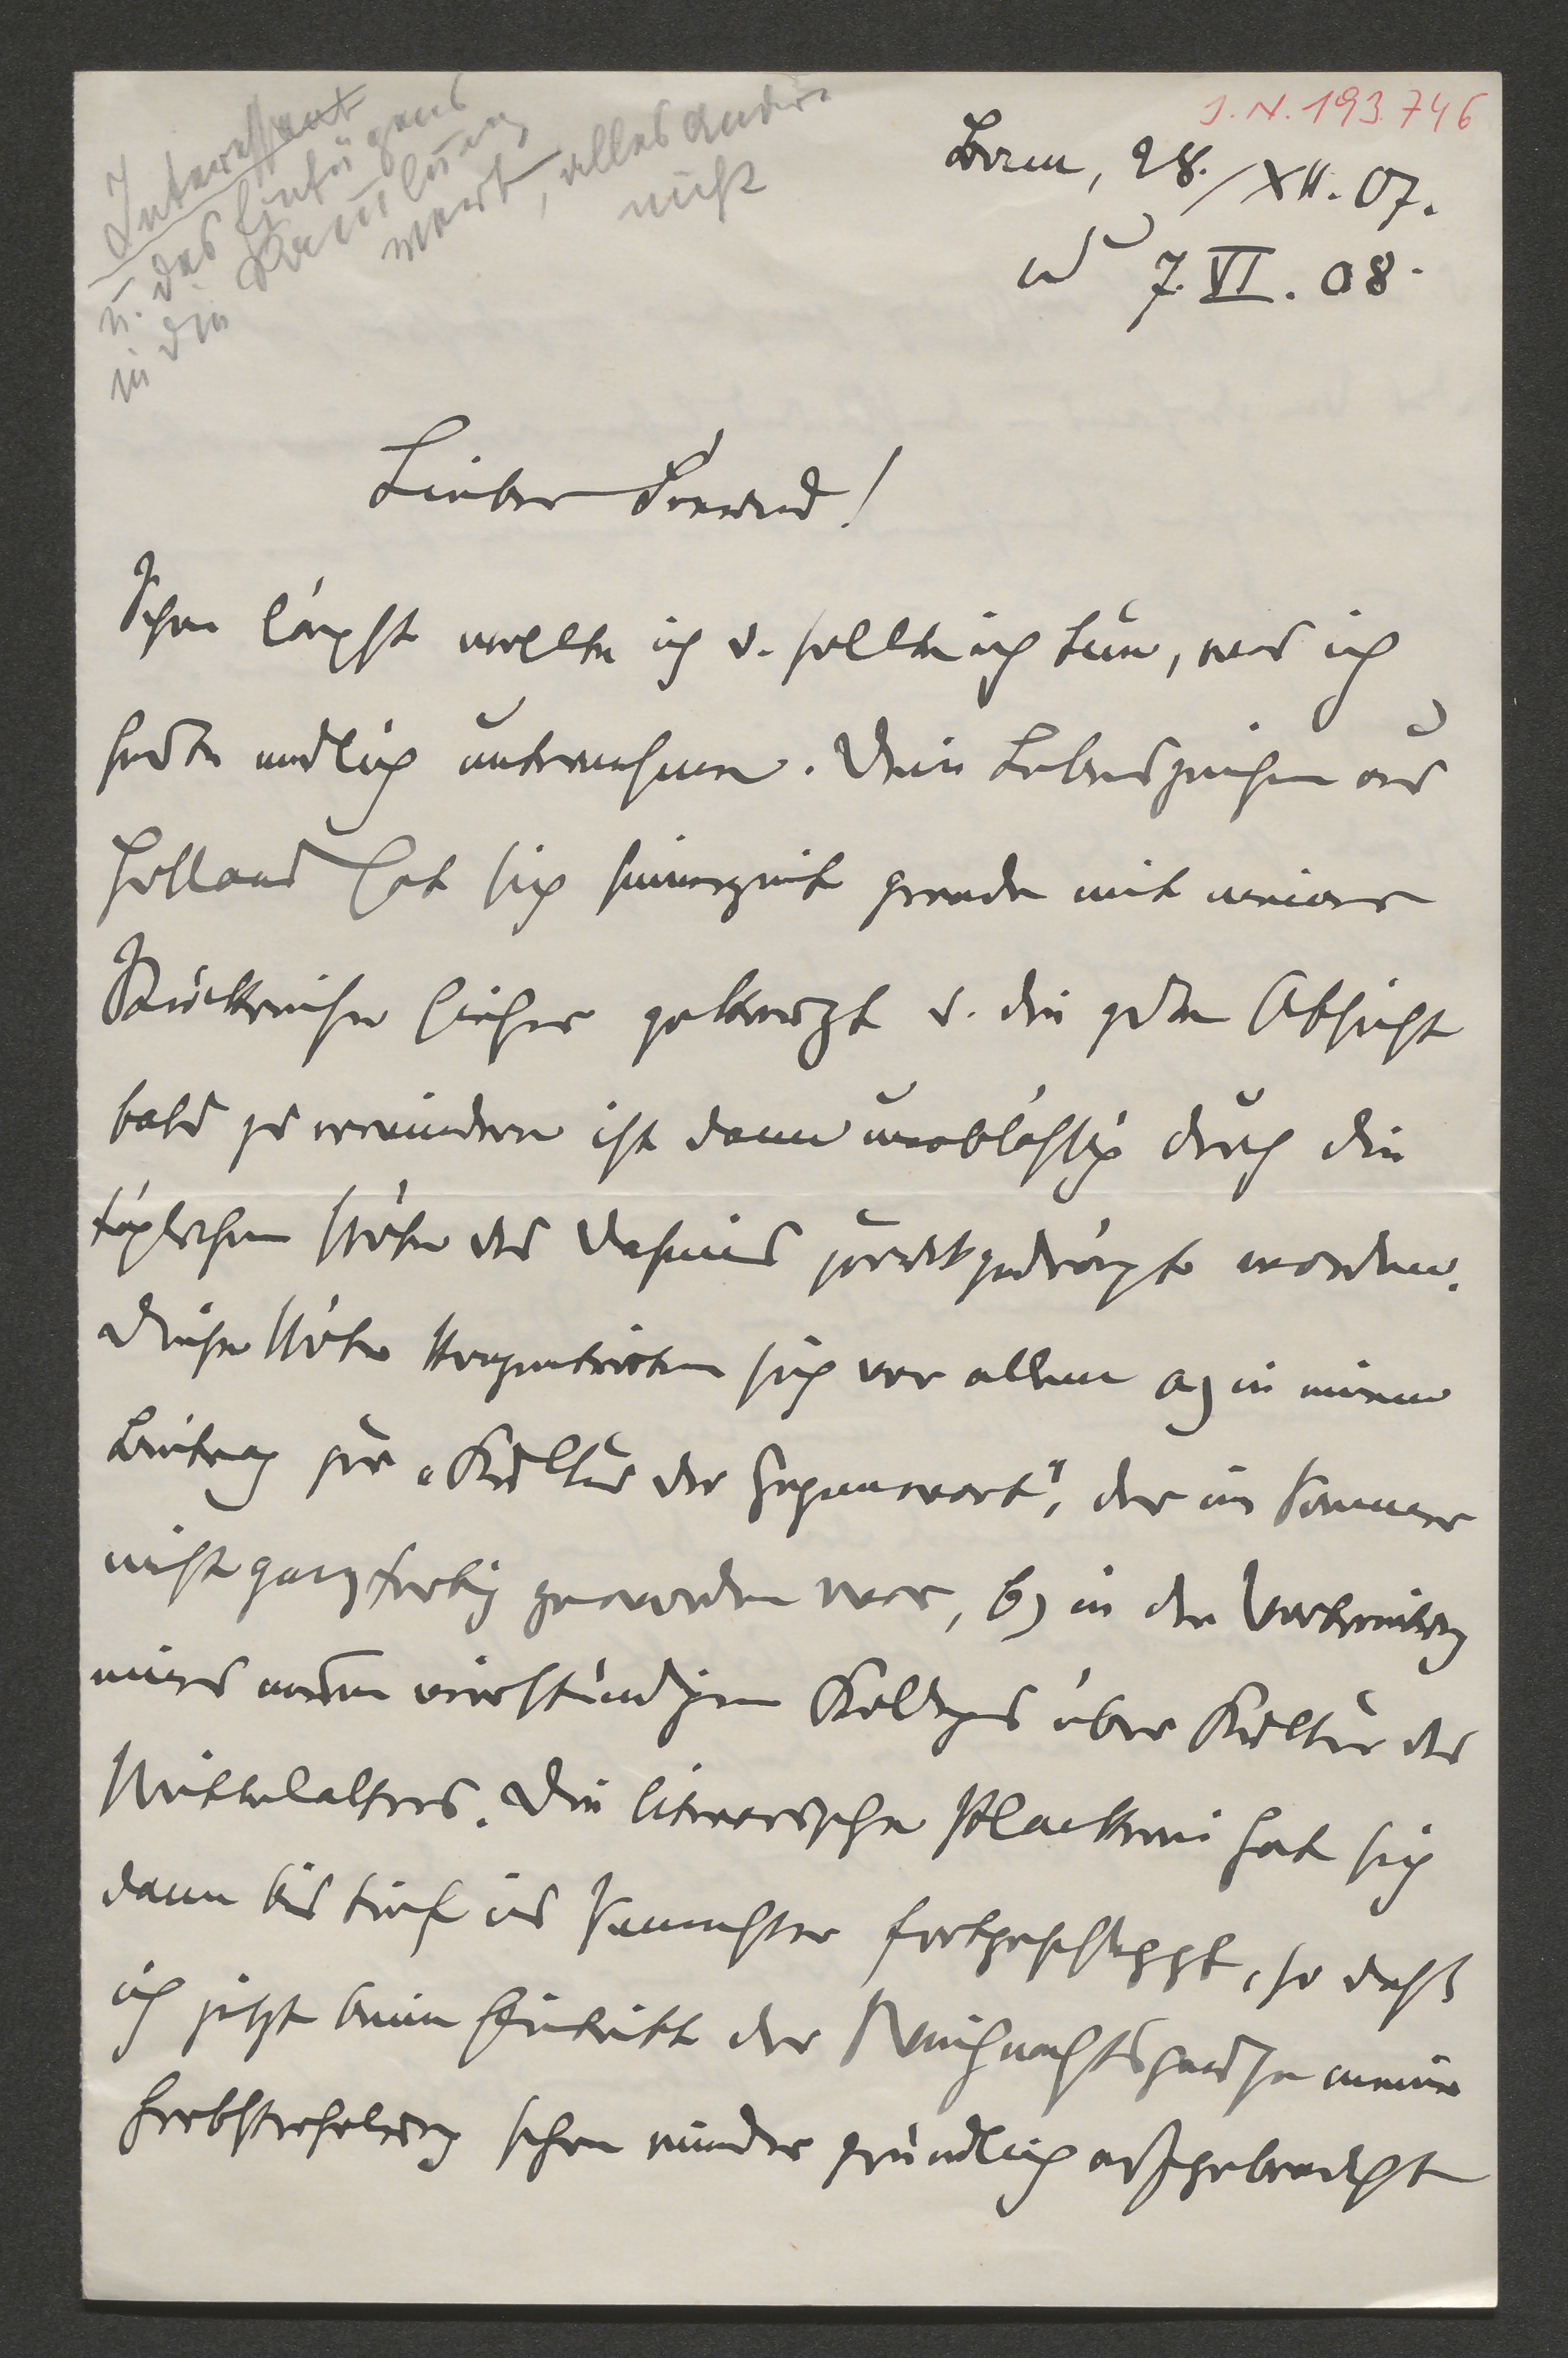 J. N. 193.746
Interessant
u. des Einfügens
in die Sammlung
wert, alles Andere
nicht
Bern, 28./XII. 07.
7. VI. 08.
Lieber Freund!
Schon längst wollte ich u. sollte ich tun, was ich
heute endlich unternehme. Dein Lebenszeichen aus
Holland hat sich seinerzeit gerade mit meiner
Rückreise hieher gekreuzt u. die gute Absicht
bald zu erwidern ist dann unablässig durch die
täglichen Nöte des Daseins zurückgedrängt worden.
Diese Nöte konzentrirten sich vor allem a) in meinem
Beitrag zur „Kultur der Gegenwart", der im Sommer
nicht ganz fertig geworden war, b) in der Vorbereitung
eines neuen vierstündigen Kollegs über Kultur des
Mittelalters. Die literarische Plackerei hat sich
dann bis tief ins Semester fortgeschleppt, so dass
ich jetzt beim Eintritt der Weihnachtspause meine
Herbsterholung schon wieder gründlich aufgebraucht